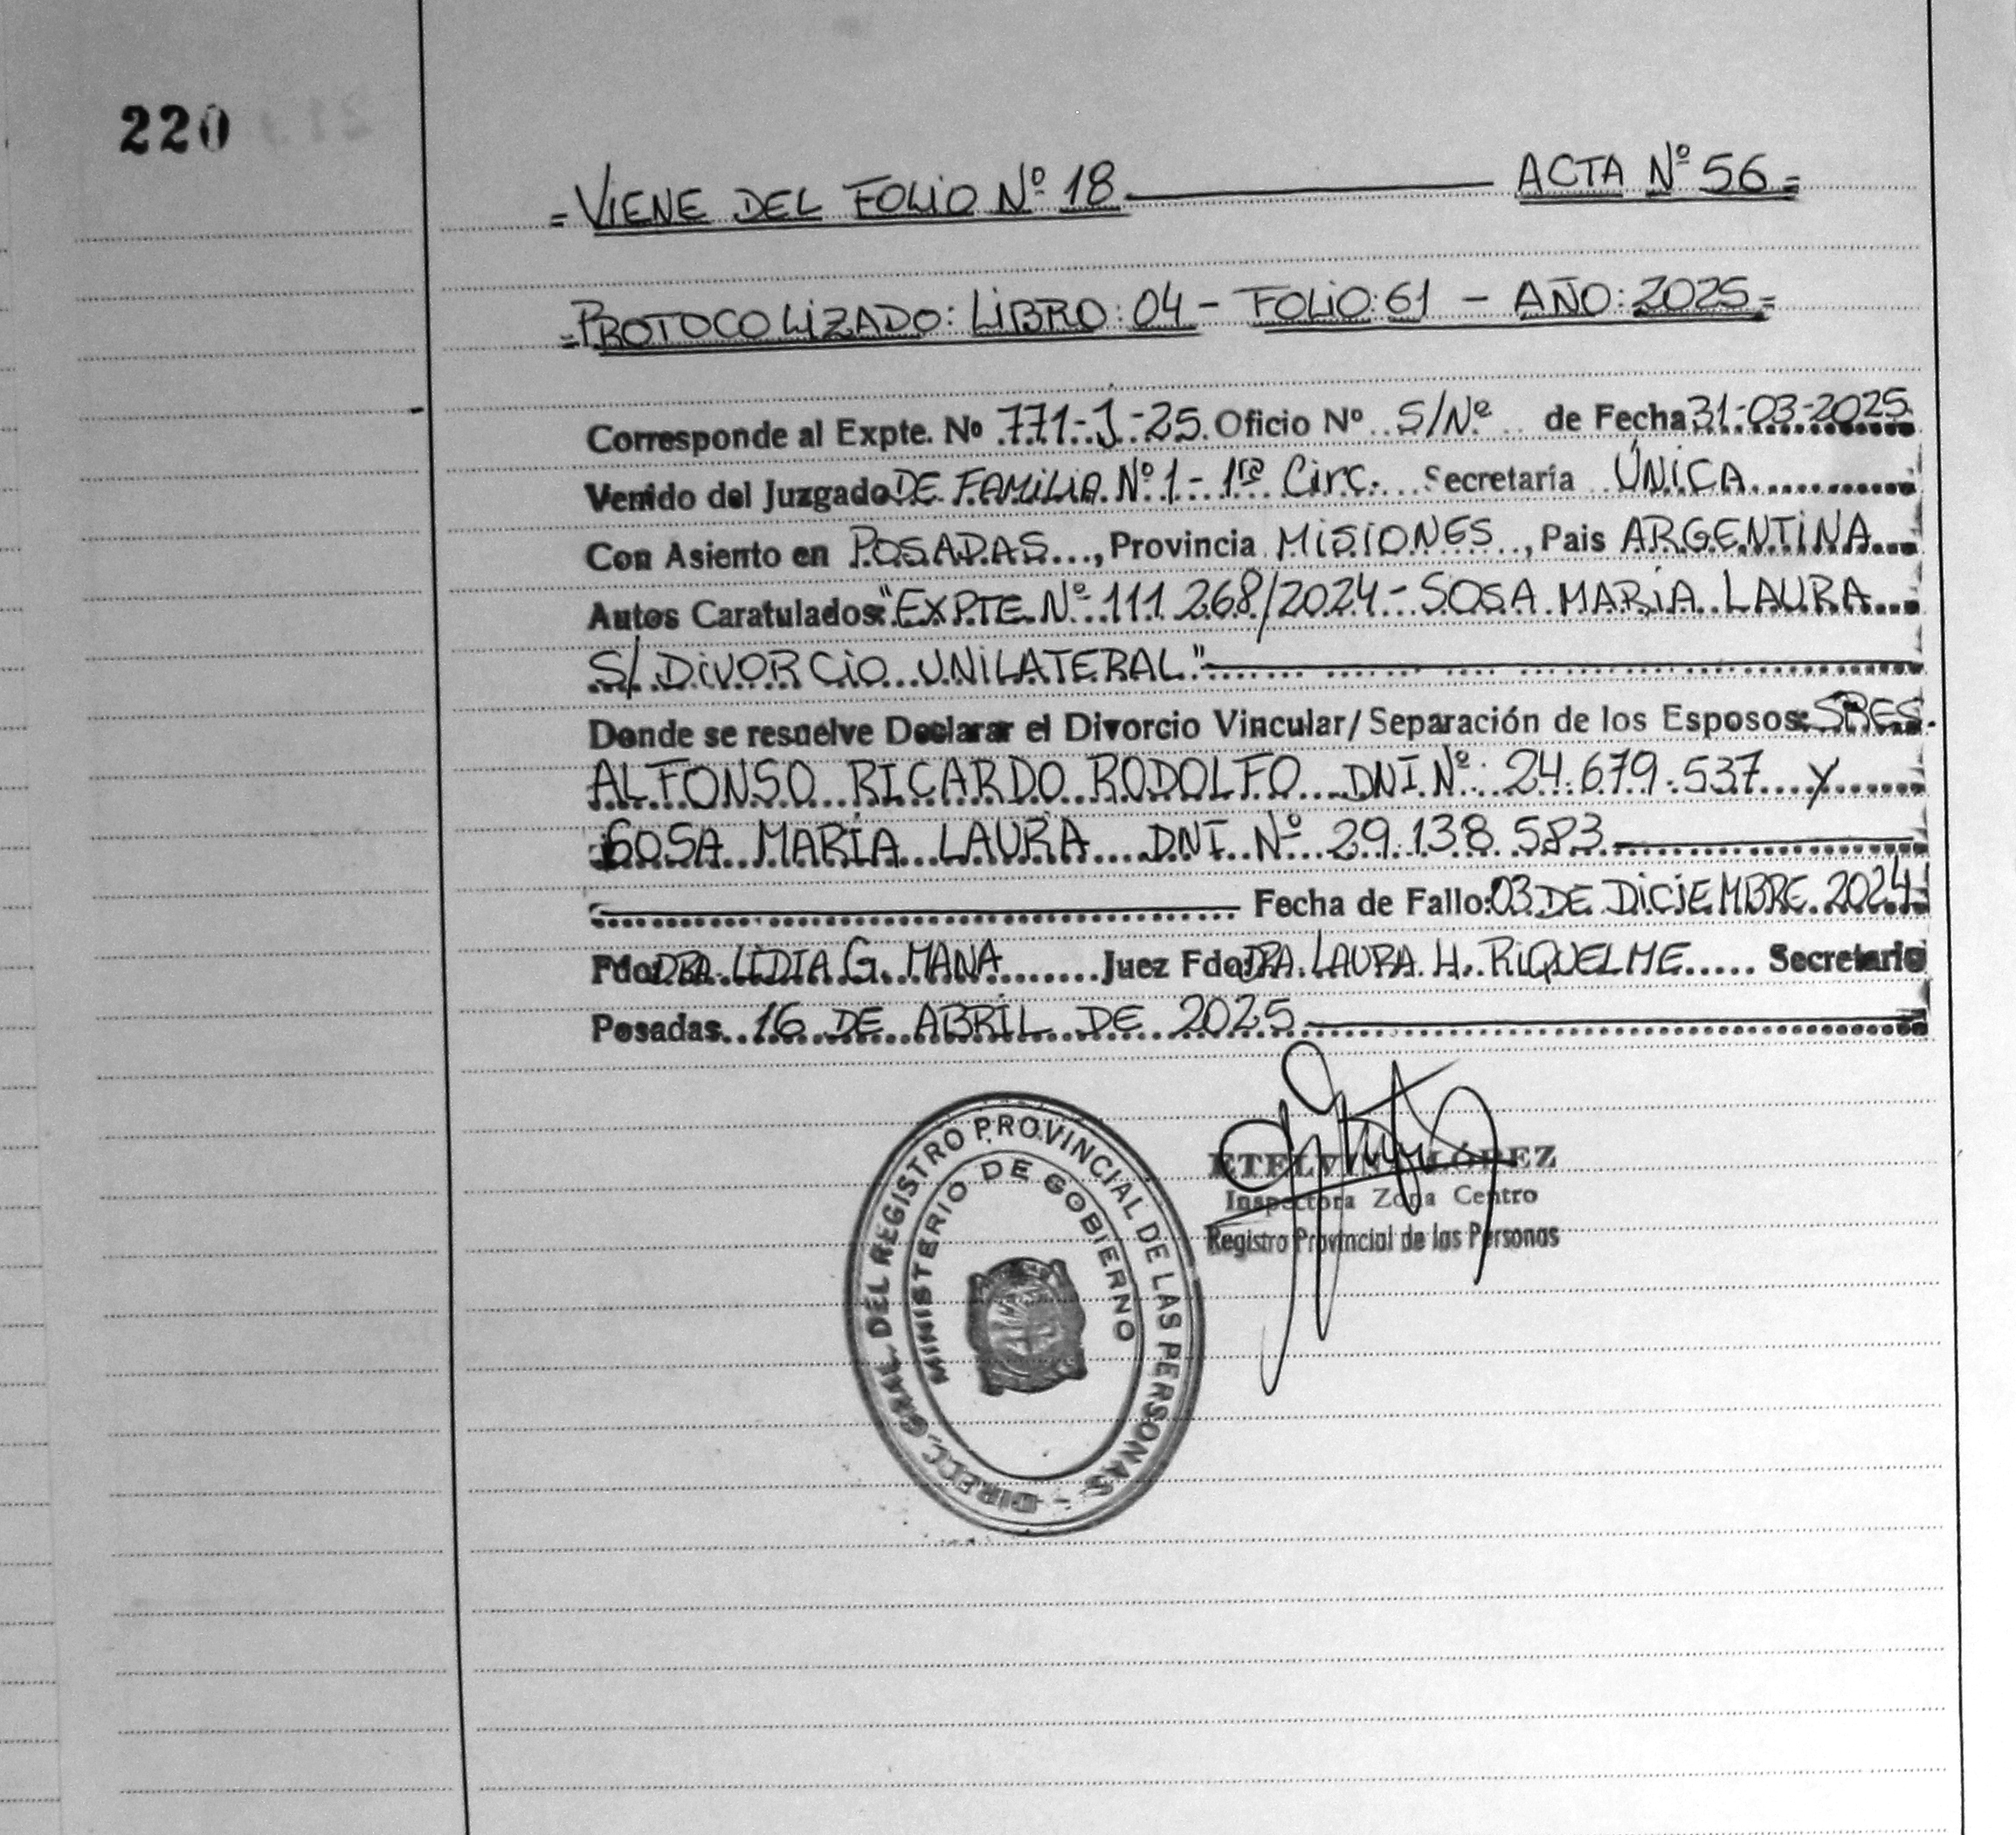 220
= VIENE DEL FOLIO Nº 18 ACTA Nº 56 =
= PROTOCOLIZADO: LIBRO: 04 - FOLIO: 61 - AÑO: 2025 =
Corresponde al Expte. Nº 771-J-25. Oficio Nº S/Nº de Fecha 31-03-2025
Venido del Juzgado DE FAMILIA Nº 1 - 1ra Circ. Secretaría ÚNICA
Con Asiento en POSADAS, Provincia MISIONES, Pais ARGENTINA
Autos Caratulados: "EXPTE Nº 111.268/2024 - SOSA MARÍA LAURA
S/ DIVORCIO UNILATERAL"
Donde se resuelve Declarar el Divorcio Vincular/Separación de los Esposos: SRES.
ALFONSO RICARDO RODOLFO DNI Nº: 24.679.537 Y
SOSA MARÍA LAURA DNI Nº 29.138.583
Fecha de Fallo: 03 DE DICIEMBRE 2024
Fdo: DRA. LIDIA G. MANA Juez Fdo: DRA. LAURA H. RIQUELME Secretario
Posadas 16 DE ABRIL DE 2025
DIRECC. GRAL. DEL REGISTRO PROVINCIAL DE LAS PERSONAS -
MINISTERIO DE GOBIERNO
ETELVINA LÓPEZ
Inspectora Zona Centro
Registro Provincial de las Personas